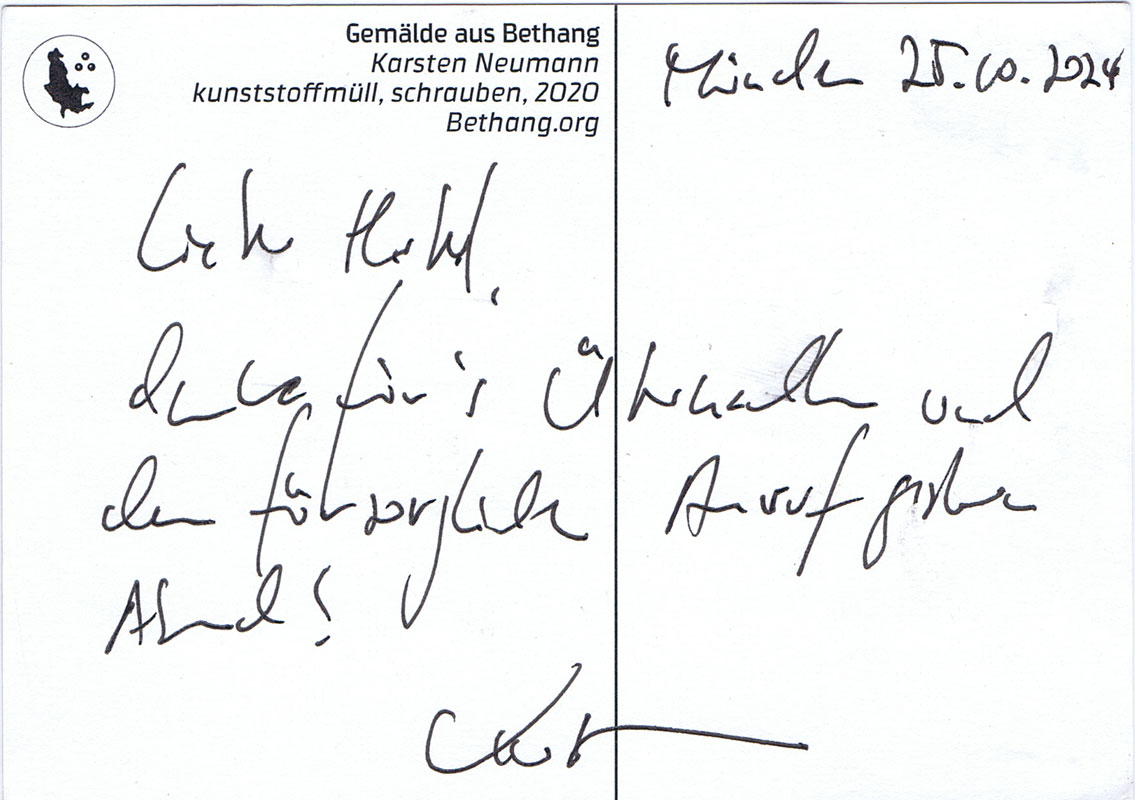 Gemälde aus Bethang
Karsten Neumann
kunststoffmüll, schrauben, 2020
Bethang.org
München 25.10.2024
danke für's Übernachten und
den fürsorglichen Anruf gestern
Abend!